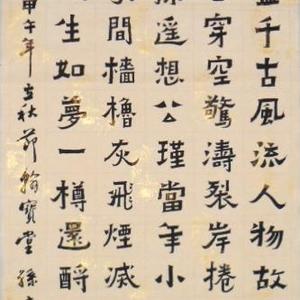 千古風流人物故
穿空驚濤裂岸捲
遙想公瑾當年小
間檣櫓灰飛煙滅
生如夢一樽還酹
甲午年立秋節翰寶堂孫